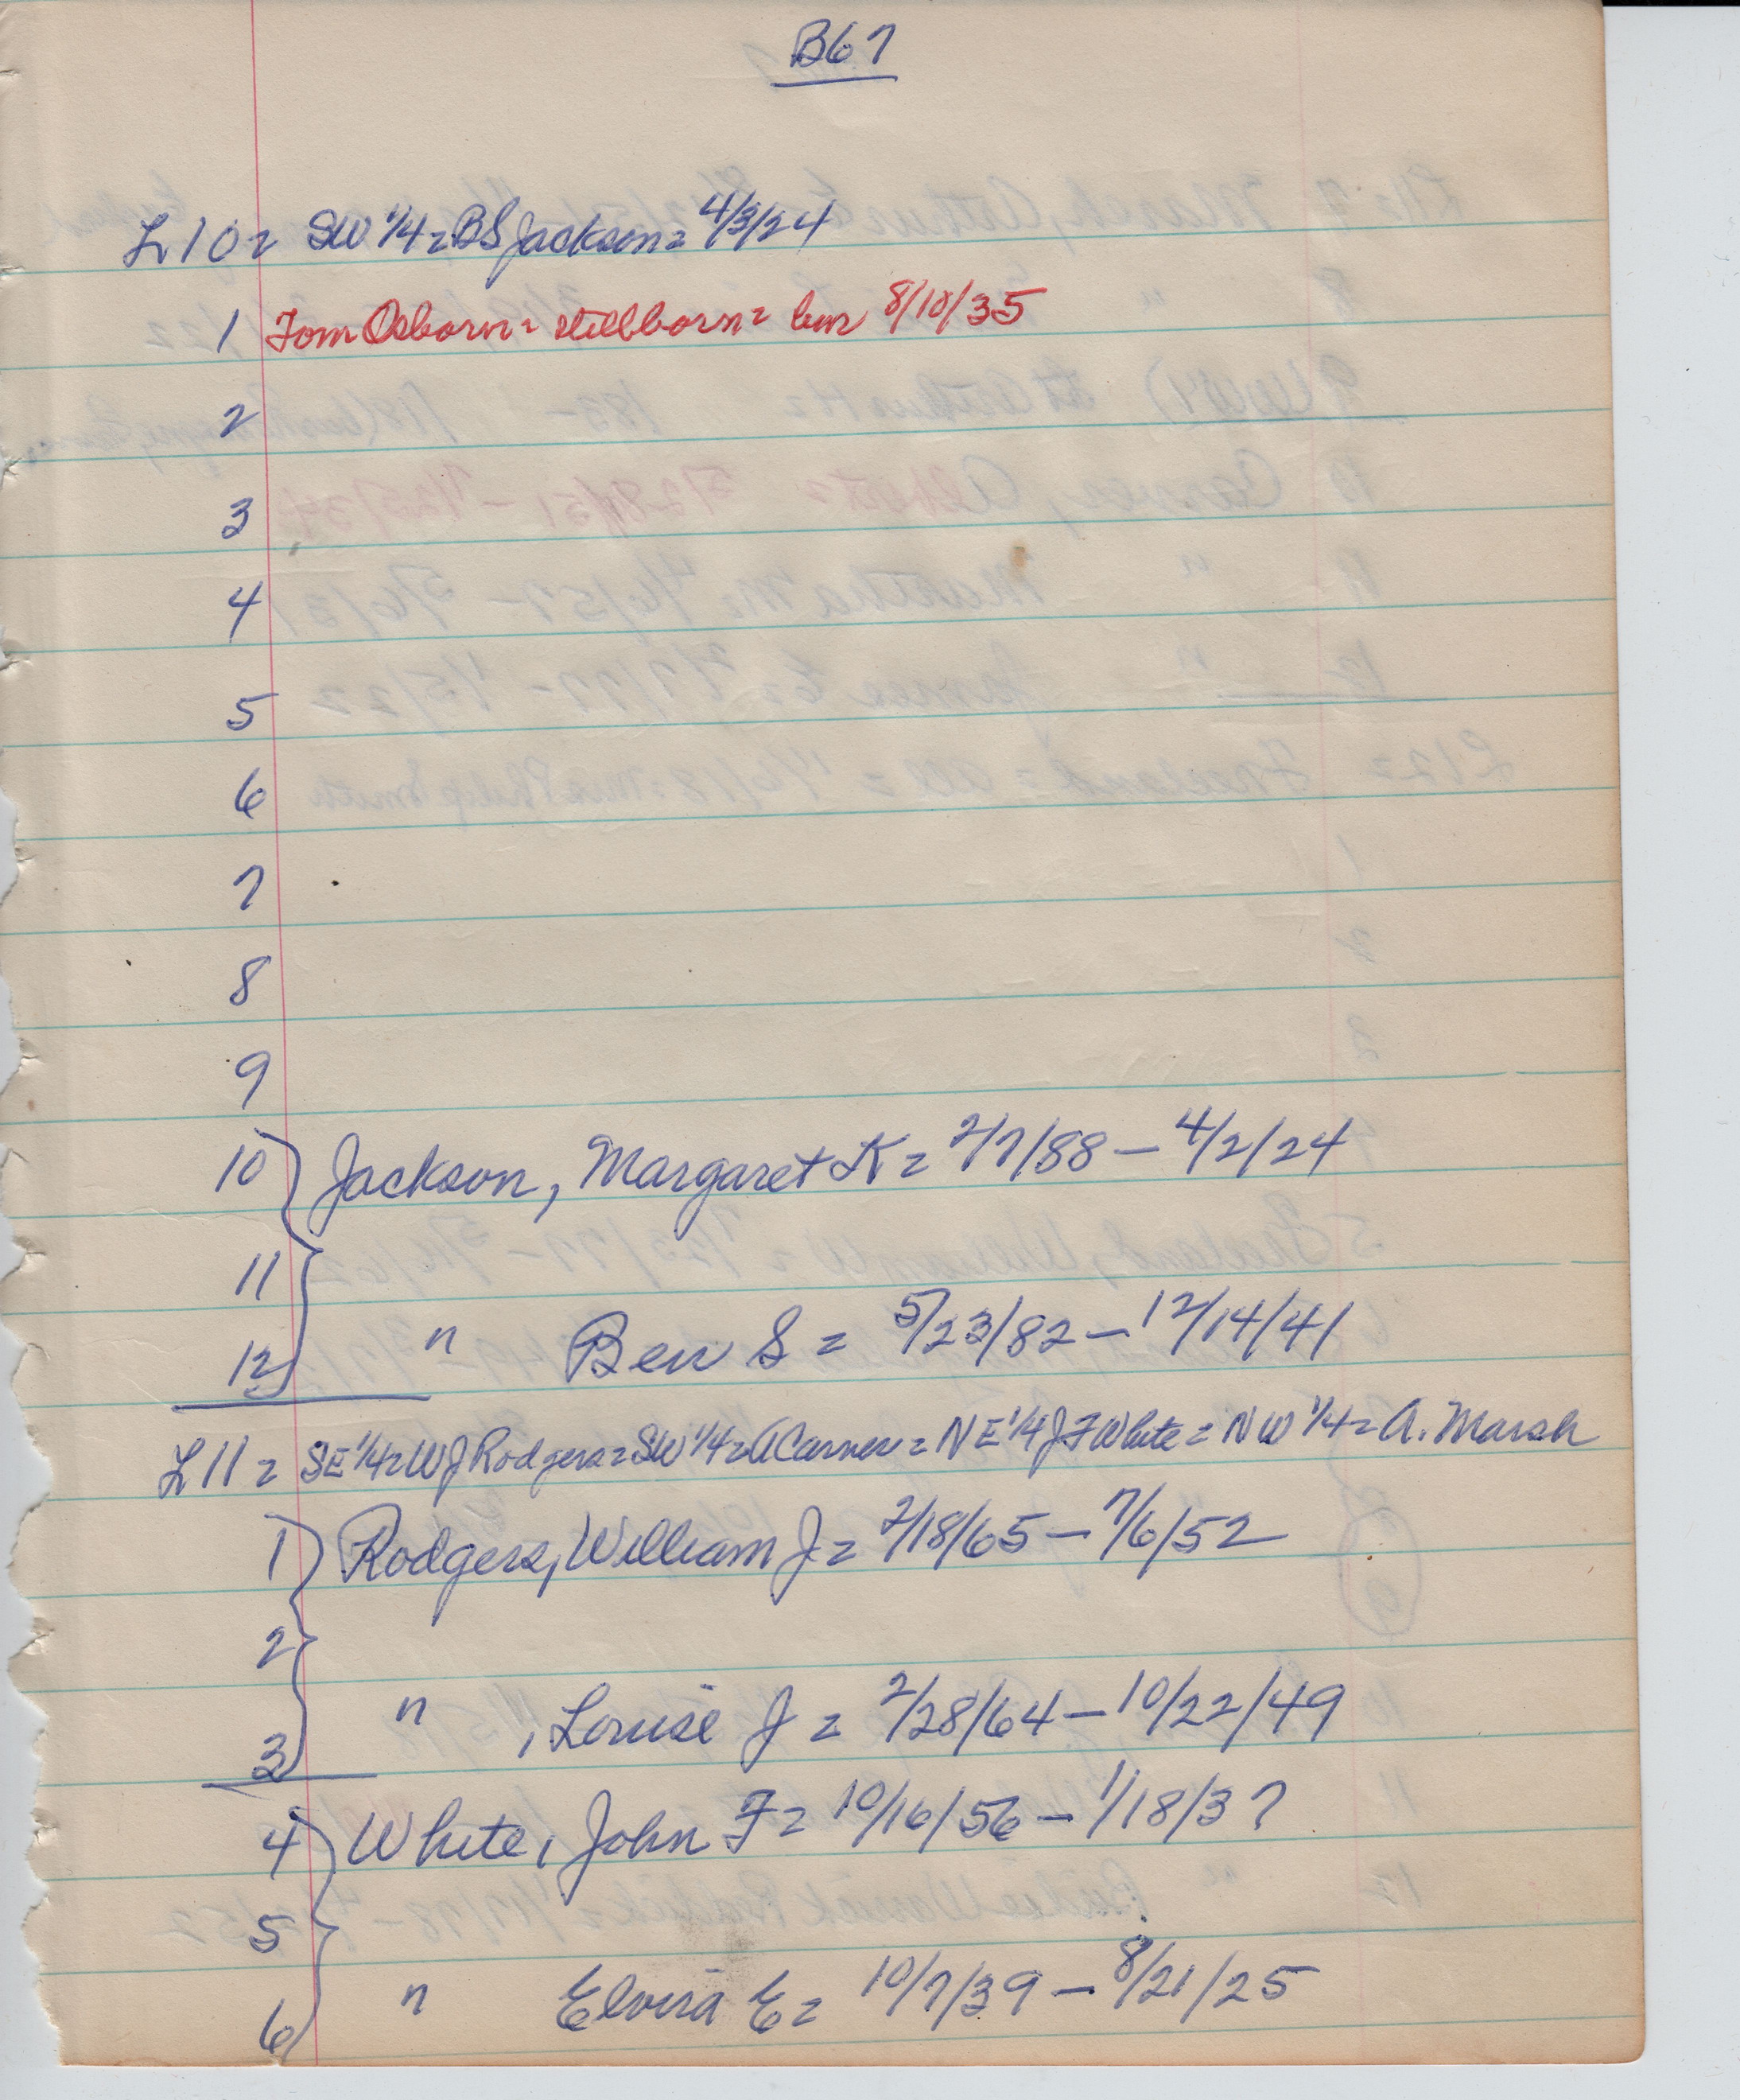 B67
L10= SW 1/4= BS Jackson= 4/3/24
1 Tom Osborn= stillborn= bur 8/10/35
2
3
4
5
6
7
8
9
10 Jackson, Margaret K= 2/7/88 – 4/2/24
11
12 " Ben S = 5/23/82 – 12/14/41
L11= SE 1/4= WJ Rodgers= SW 1/4= A Carner= NE 1/4 JF White= NW 1/4= A. Marsh
1 Rodgers, William J= 2/18/65 – 7/6/52
2
3 " , Louise J = 2/28/64 – 10/22/49
4 White, John F= 10/16/56 – 1/18/37
5
6 " Elvira E= 10/7/39 – 8/21/25